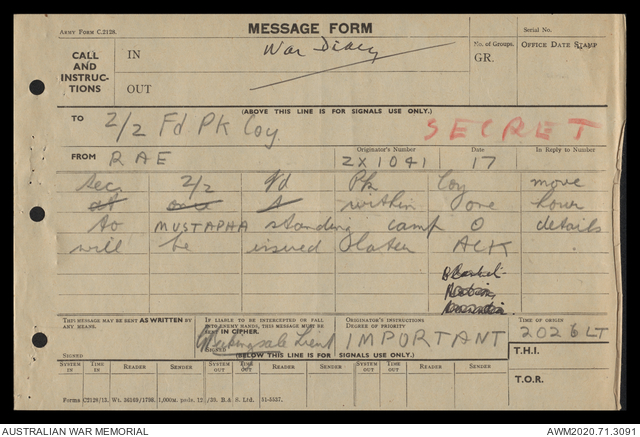 ARMY FORM C.2128.
MESSAGE FORM
Serial No.
CALL AND INSTRUCTIONS
IN
War Diary
No. of Groups.
GR.
OFFICE DATE STAMP
OUT
(ABOVE THIS LINE IS FOR SIGNALS USE ONLY.)
TO 2/2 Fd Pk Coy
SECRET
FROM RAE
Originator's Number
ZX1041
Date
17
In Reply to Number
Sec 2/2 Fd Pk Coy move
at within one hour
to MUSTAPHA standing camp O details
will be issued later ACK
THIS MESSAGE MAY BE SENT AS WRITTEN BY ANY MEANS.
IF LIABLE TO BE INTERCEPTED OR FALL INTO ENEMY HANDS, THIS MESSAGE MUST BE SENT IN CIPHER.
ORIGINATOR'S INSTRUCTIONS
DEGREE OF PRIORITY
IMPORTANT
TIME OF ORIGIN
2026 LT
SIGNED
SIGNED Lieut
(BELOW THIS LINE IS FOR SIGNALS USE ONLY.)
T.H.I.
SYSTEM IN
TIME IN
READER
SENDER
SYSTEM OUT
TIME OUT
READER
SENDER
SYSTEM OUT
TIME OUT
READER
SENDER
T.O.R.
Forms C2128/13. Wt. 36103/1788. 1,000M. pads. 12/39. B.A.S. Ltd. 51-5557.
AUSTRALIAN WAR MEMORIAL
AWM2020.71.3091